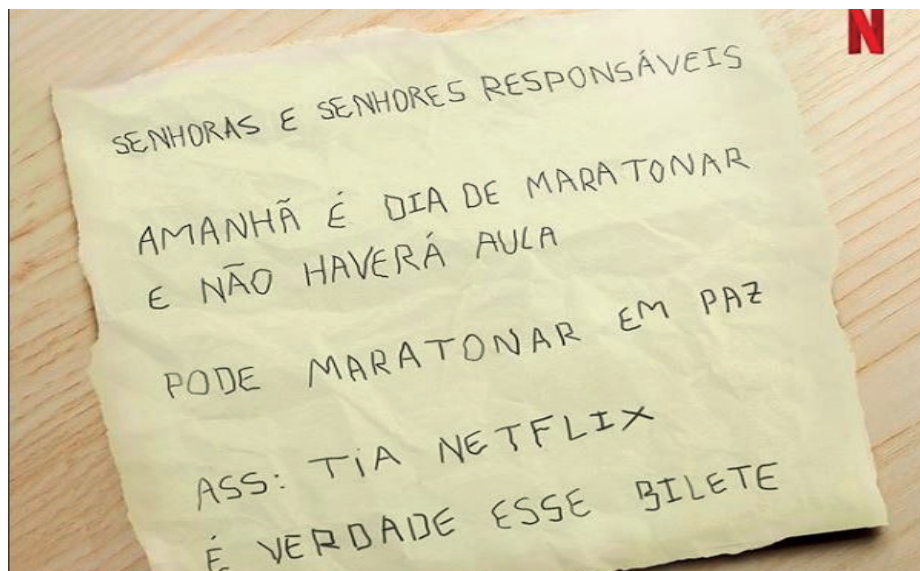 N
SENHORAS E SENHORES RESPONSÁVEIS
AMANHÃ É DIA DE MARATONAR
E NÃO HAVERÁ AULA
PODE MARATONAR EM PAZ
ASS: TiA NETFLIX
É VERDADE ESSE BILETE